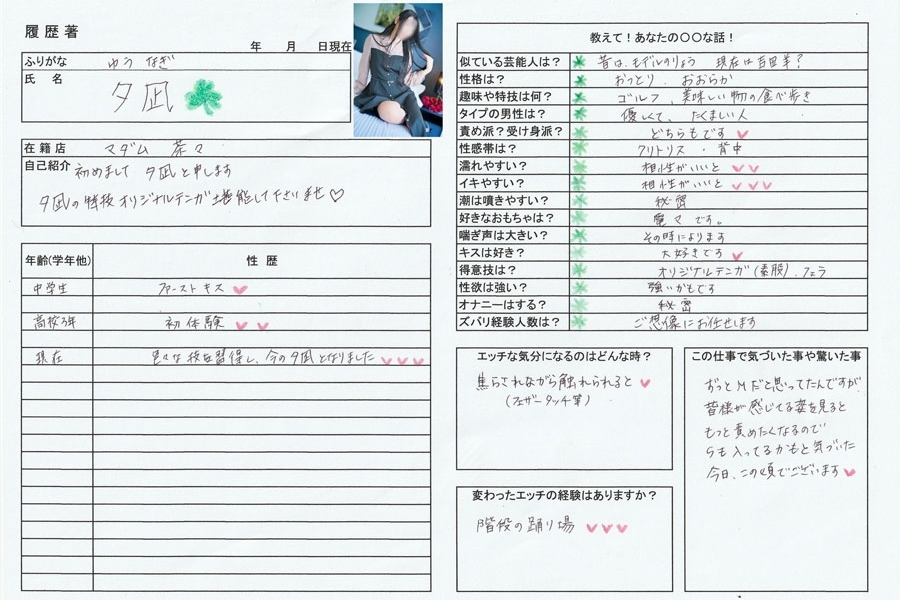 履歴著
年 月 日現在
ふりがな ゆう なぎ
氏 名 夕凪
在籍店 マダム 茶々
自己紹介 初めまして 夕凪と申します
夕凪の特技 オリジナルテンガ 堪能して下さいませ♡
年齢(学年他) 性 歴
中学生 ファーストキス
高校3年 初体験
現在 色々な技を習得し、今の夕凪となりました
教えて!あなたの〇〇な話!
似ている芸能人は? 昔は、モデルのりょう 現在は
性格は? おっとり、おおらか
趣味や特技は何? ゴルフ、美味しい物の食べ歩き
タイプの男性は? 優しくて、たくましい人
責め派?受け身派? どちらもです
性感帯は? クリトリス・背中
濡れやすい? 相性がいいと
イキやすい? 相性がいいと
潮は噴きやすい? 秘密
好きなおもちゃは? 魔々です。
喘ぎ声は大きい? その時によります
キスは好き? 大好きです
得意技は? オリジナルテンガ(素股)、フェラ
性欲は強い? 強いかもです
オナニーはする? 秘密
ズバリ経験人数は? ご想像にお任せします
エッチな気分になるのはどんな時?
焦らされながら触れられると
(フェザータッチ等)
変わったエッチの経験はありますか?
階段の踊り場
この仕事で気づいた事や驚いた事
ずっとMだと思ってたんですが
皆様が感じてる姿を見ると
もっと責めたくなるので
Sも入ってるかもと気づいた
今日、この頃でございます